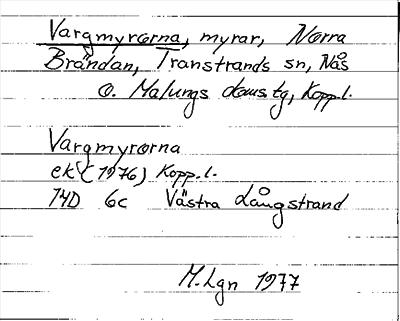 Vargmyrorna, myrar, Norra
Brändan, Transtrands sn, Nås
o. Malungs domstg, Kopp.l.
Vargmyrarna
ek (1976) Kopp.l.
14D 6c Västra Långstrand
M.Lgn 1977